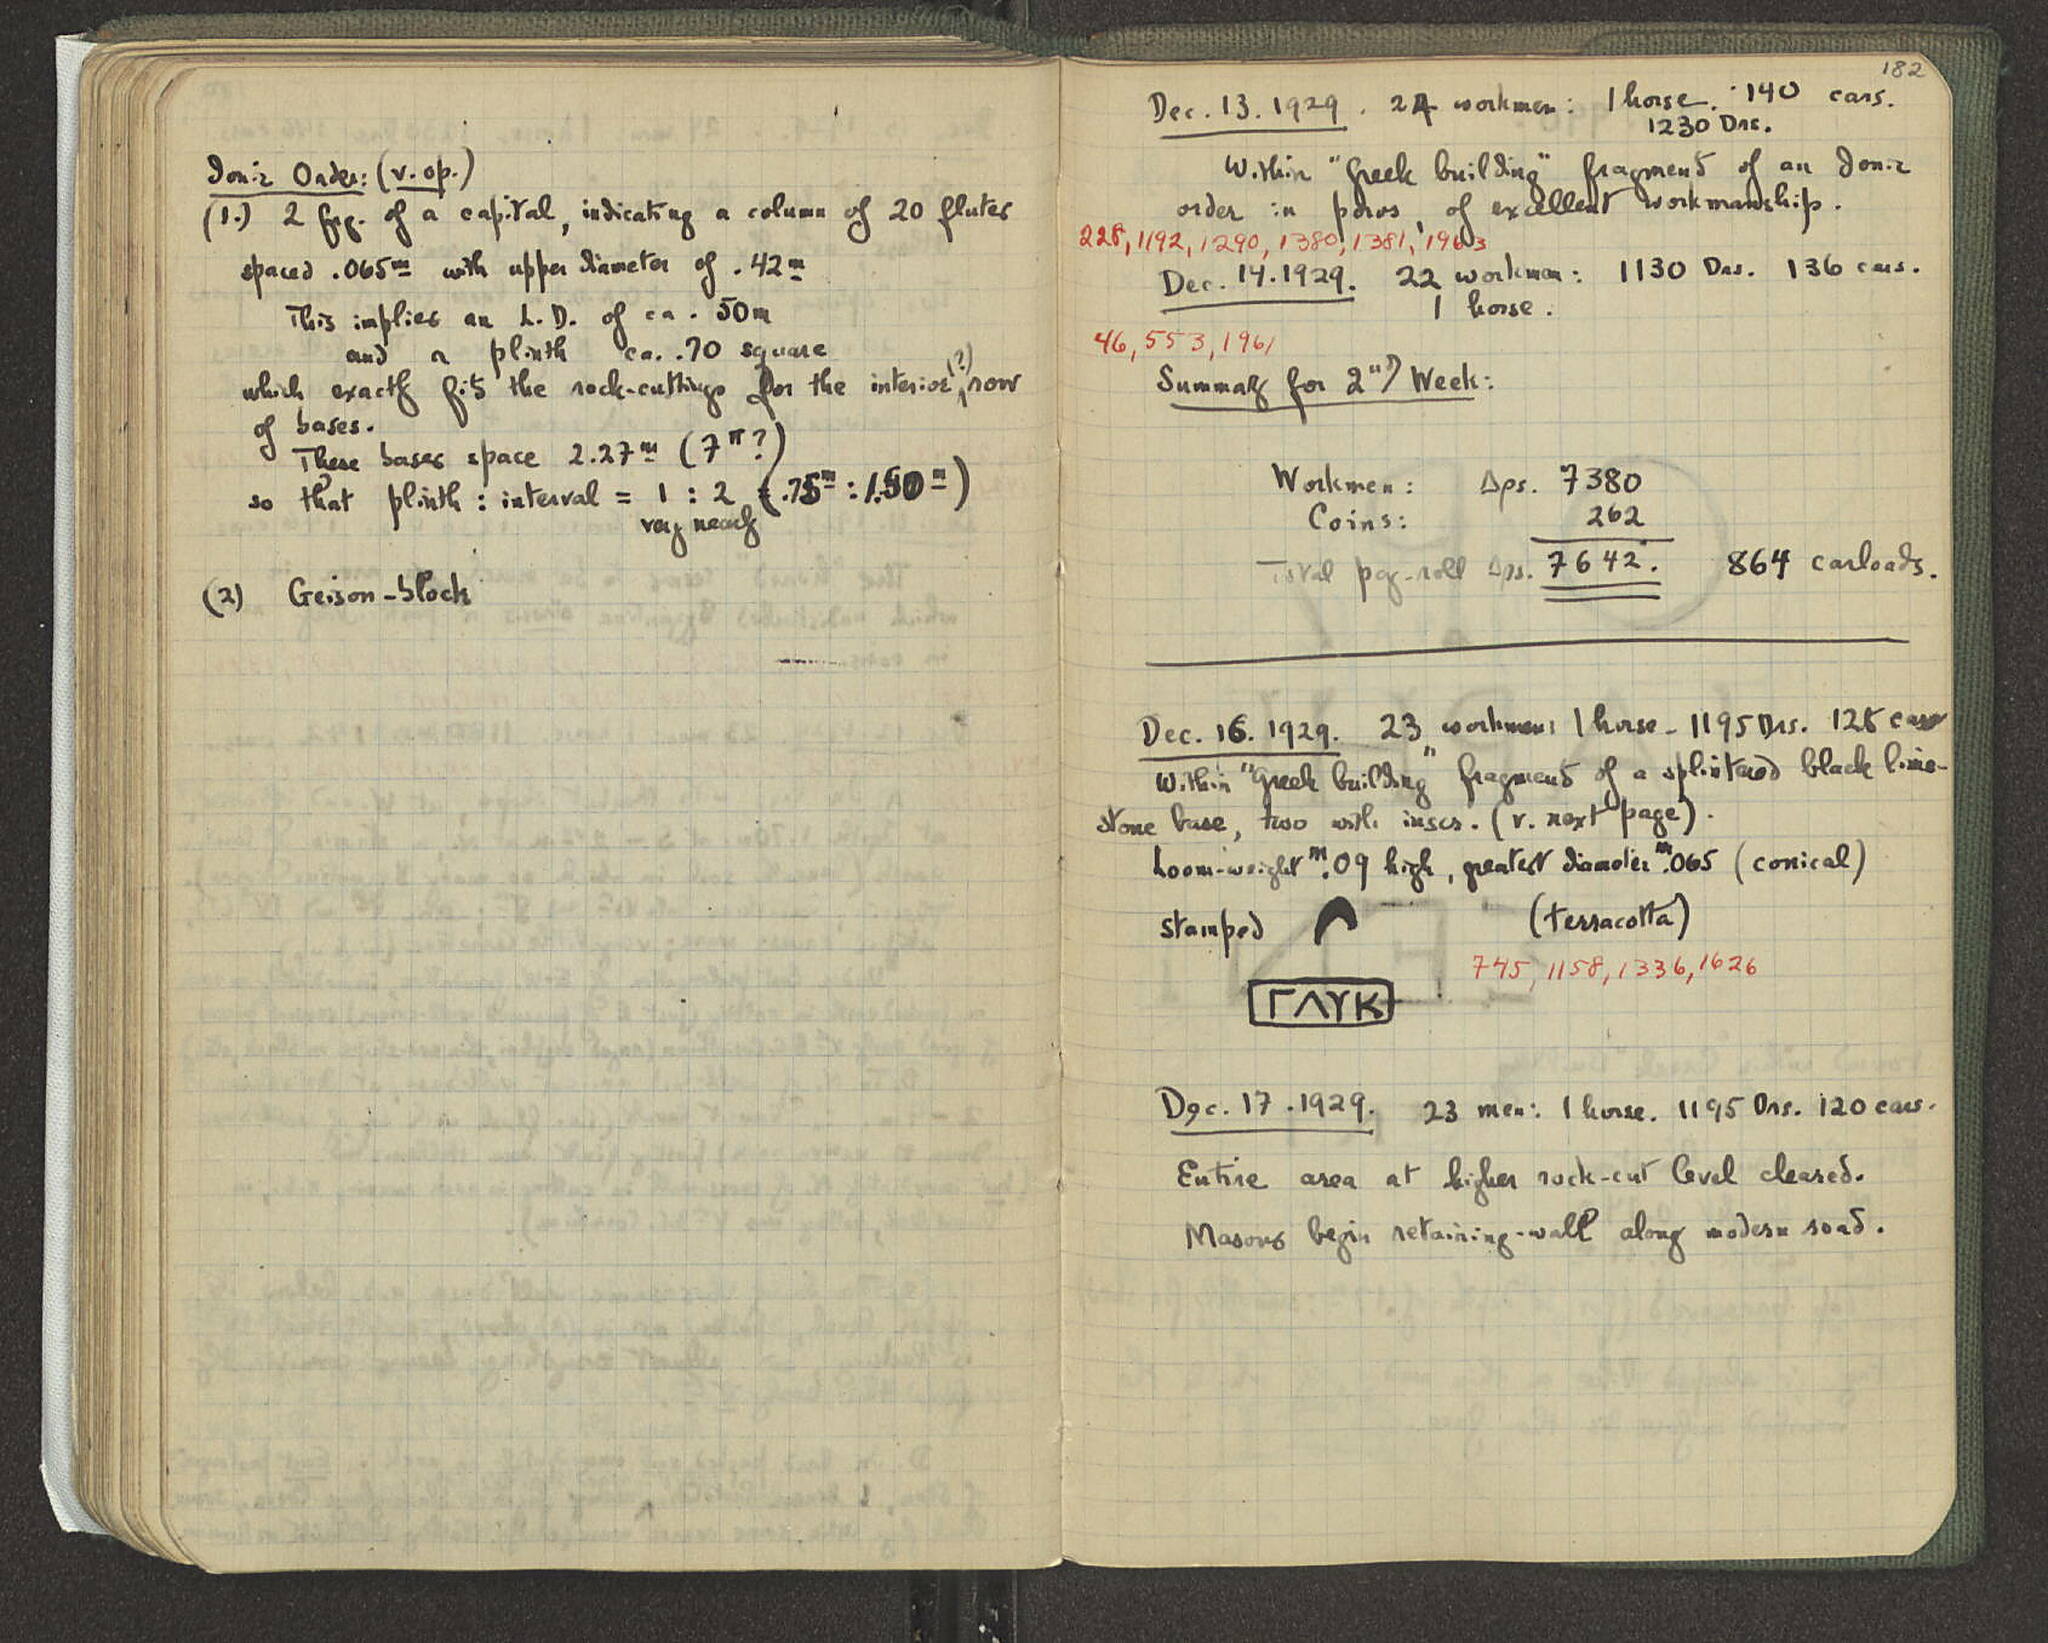 Ionic Order: (v. op.)
(1.) 2 frg. of a capital, indicating a column of 20 flutes
spaced .065m with upper diameter of .42m
This implies an L. D. of ca. .50m
and a plinth ca. .70 square
which exactly fits the rock-cuttings for the interior (?) row
of bases.
These bases space 2.27m (7π?)
so that plinth : interval = 1 : 2 (.75m : 1.50m)
very nearly
(2) Geison-block
182
Dec. 13. 1929. 24 workmen: 1 horse. 140 cars.
1230 Drs.
Within "Greek building" fragments of an Ionic
order in poros, of excellent workmanship.
228, 1192, 1290, 1380, 1381, 1963
Dec. 14. 1929. 22 workmen: 1130 Drs. 136 cars.
1 horse.
46, 553, 1961
Summary for 2nd Week:
Workmen: Δρs. 7380
Coins: 262
Total pay-roll Δρs. 7642. 864 carloads.
Dec. 16. 1929. 23 workmen: 1 horse - 1195 Drs. 128 cars
Within "Greek building" fragments of a splintered black lime-
stone base, two with inscr. (v. next page).
Loom-weight m.09 high, greatest diameter m.065 (conical)
stamped (terracotta)
745, 1158, 1336, 1626
ΓΛΥΚ
Dec. 17. 1929. 23 men: 1 horse. 1195 Drs. 120 cars.
Entire area at higher rock-cut level cleared.
Masons begin retaining-wall along modern road.